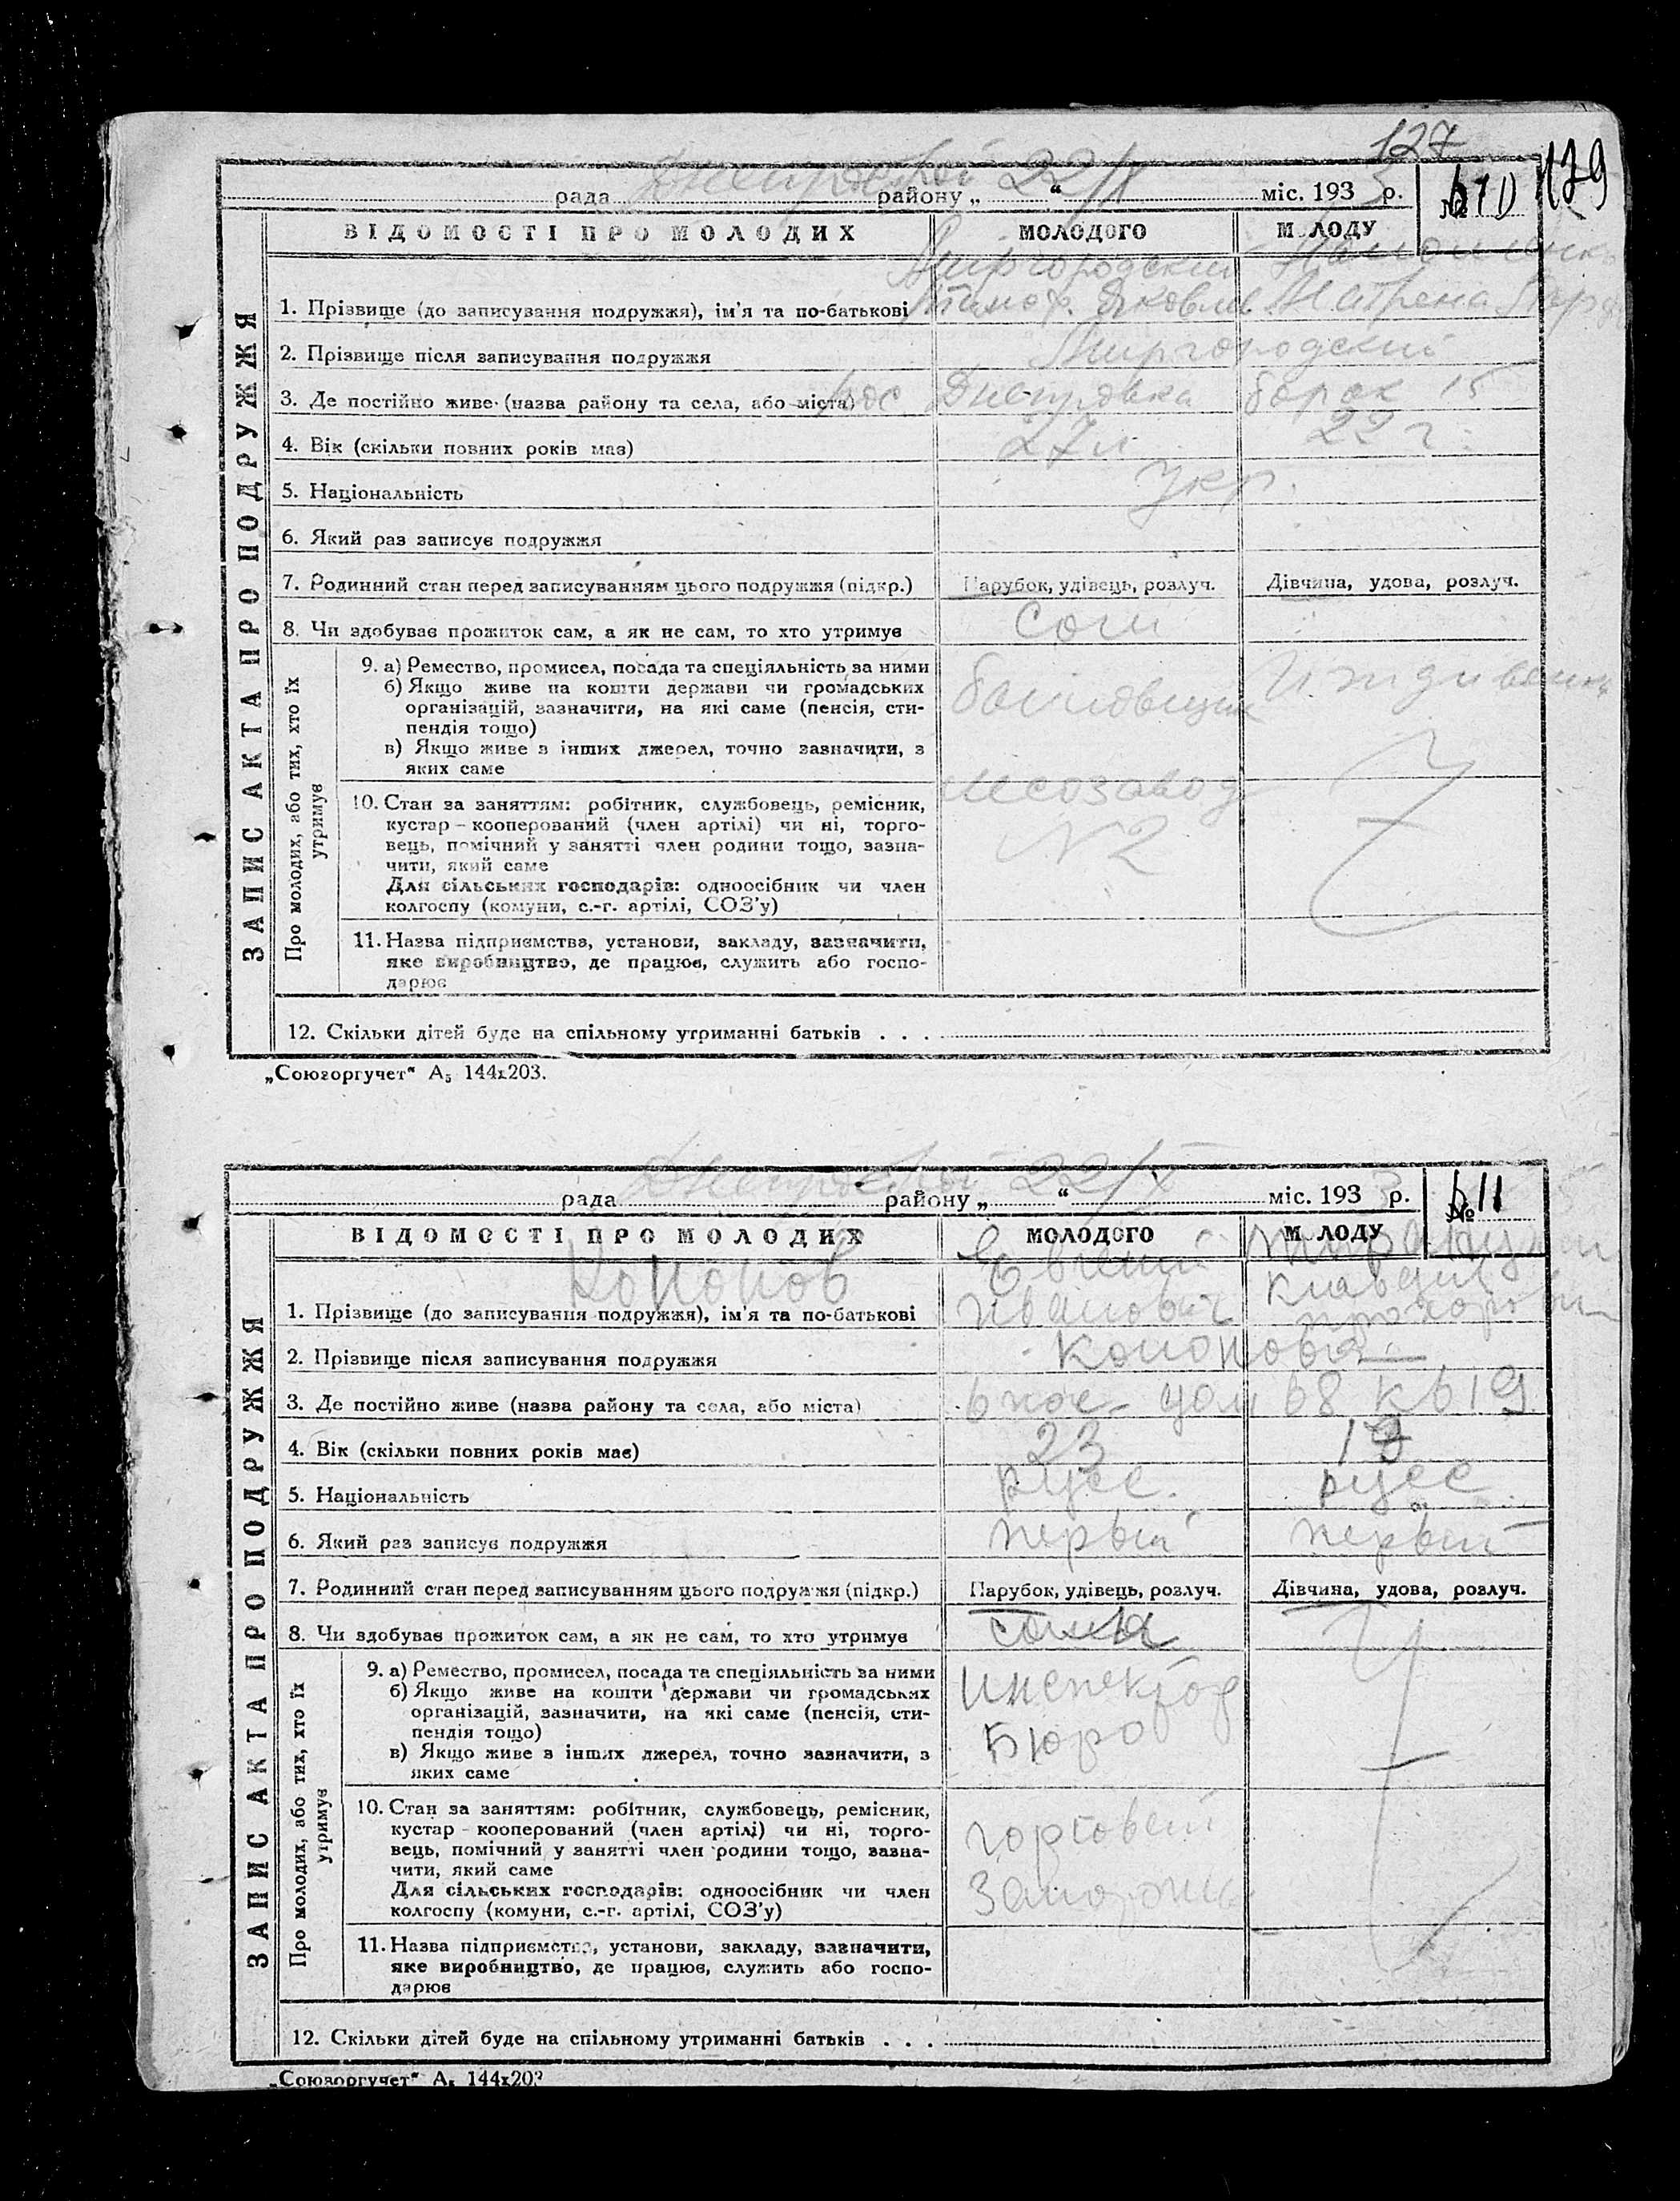 127
129
рада Днепровский району „ 22/IX “ міс. 193 3 р. № 610
ЗАПИС АКТА ПРО ПОДРУЖЖЯ
ВІДОМОСТІ ПРО МОЛОДИХ МОЛОДОГО МОЛОДУ
Миргородский
1. Прізвище (до записування подружжя), ім'я та по-батькові Тимоф. Яковлев. Матрена
2. Прізвище після записування подружжя Миргородский
3. Де постійно живе (назва району та села, або міста) пос Днепровка барак 15
4. Вік (скільки повних років має) 27 л 22 г.
5. Національність Укр.
6. Який раз записує подружжя
7. Родинний стан перед записуванням цього подружжя (підкр.) Парубок, удівець, розлуч. Дівчина, удова, розлуч.
8. Чи здобуває прожиток сам, а як не сам, то хто утримує сам
Про молодих, або тих, хто їх утримує
9. а) Ремество, промисел, посада та спеціяльність за ними
б) Якщо живе на кошти держави чи громадських
організацій, зазначити, на які саме (пенсія, сти-
пендія тощо)
в) Якщо живе з інших джерел, точно зазначити, з
яких саме
Иждивенка
10. Стан за заняттям: робітник, службовець, ремісник,
кустар – кооперований (член артілі) чи ні, торго-
вець, помічний у занятті член родини тощо, зазна-
чити, який саме
Для сільських господарів: одноосібник чи член
колгоспу (комуни, с.-г. артілі, СОЗ'у)
лесозавод
N 2
11. Назва підприємства, установи, закладу, зазначити,
яке виробництво, де працює, служить або госпо-
дарює
12. Скільки дітей буде на спільному утриманні батьків . . .
„Союзоргучет“ А₅ 144х203.
рада Днепровский району „ 22/IX “ міс. 193 3 р. № 611
ЗАПИС АКТА ПРО ПОДРУЖЖЯ
ВІДОМОСТІ ПРО МОЛОДИХ МОЛОДОГО МОЛОДУ
Кононов Евгений Клавдия
1. Прізвище (до записування подружжя), ім'я та по-батькові Иванович
2. Прізвище після записування подружжя Кононова
3. Де постійно живе (назва району та села, або міста) 6 пос. дом 68 кв 19
4. Вік (скільки повних років має) 23 19
5. Національність русс. русс.
6. Який раз записує подружжя первый первый
7. Родинний стан перед записуванням цього подружжя (підкр.) Парубок, удівець, розлуч. Дівчина, удова, розлуч.
8. Чи здобуває прожиток сам, а як не сам, то хто утримує
Про молодих, або тих, хто їх утримує
9. а) Ремество, промисел, посада та спеціяльність за ними
б) Якщо живе на кошти держави чи громадських
організацій, зазначити, на які саме (пенсія, сти-
пендія тощо)
в) Якщо живе з інших джерел, точно зазначити, з
яких саме
инспектор
Бюро
10. Стан за заняттям: робітник, службовець, ремісник,
кустар – кооперований (член артілі) чи ні, торго-
вець, помічний у занятті член родини тощо, зазна-
чити, який саме
Для сільських господарів: одноосібник чи член
колгоспу (комуни, с.-г. артілі, СОЗ'у)
11. Назва підприємства, установи, закладу, зазначити,
яке виробництво, де працює, служить або госпо-
дарює
12. Скільки дітей буде на спільному утриманні батьків . . .
„Союзоргучет“ А₅ 144х203